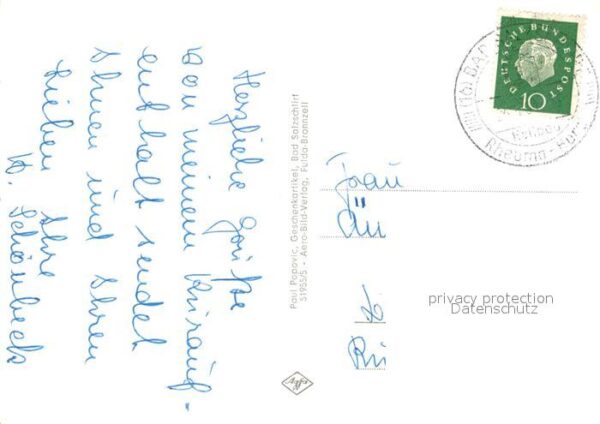 Herzliche Grüße
von meinem Kurauf-
enthalt sendet
Ihnen und Ihren
Lieben Ihre
H. Schönbeck
Paul Popovic, Geschenkartikel, Bad Salzschlirf
51955/5 • Aero-Bild-Verlag, Fulda-Bronnzell
Agfa
DEUTSCHE BUNDESPOST
10
(16) BAD
Rheuma
Frau
privacy protection
Datenschutz